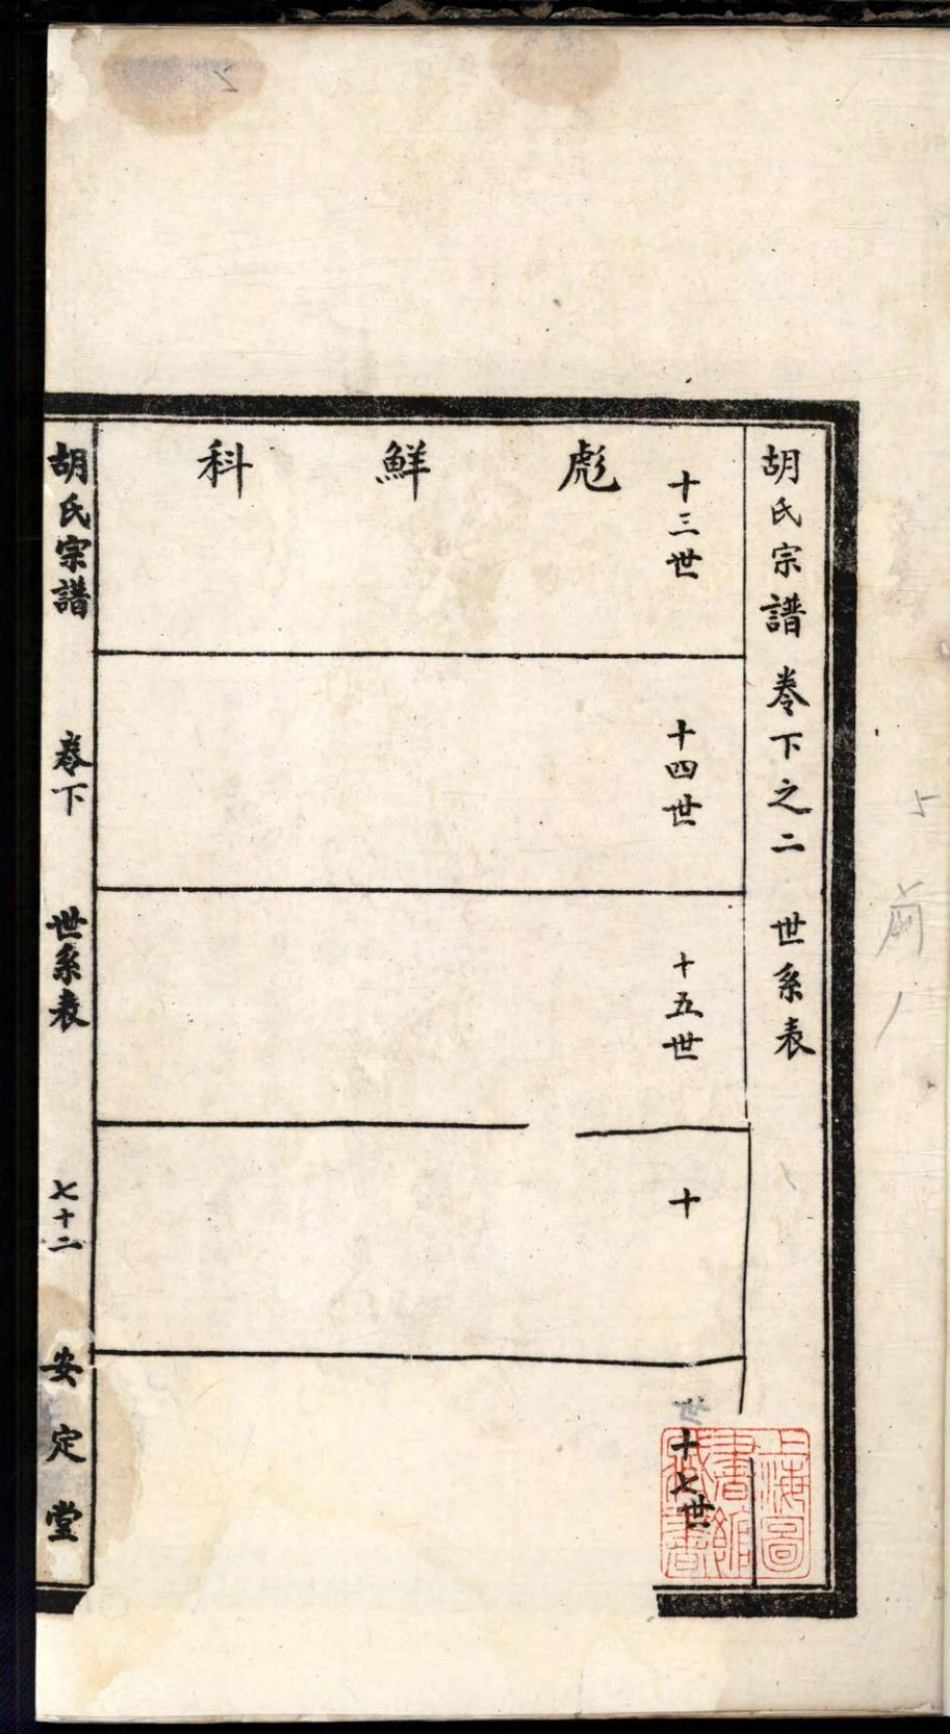 胡氏宗譜 卷下之二 世系表
十三世
十四世
十五世
十
世
十七世
彪
鮮
科
胡氏宗譜 卷下 世系表 七十二 安定堂
上海圖
書館
藏書